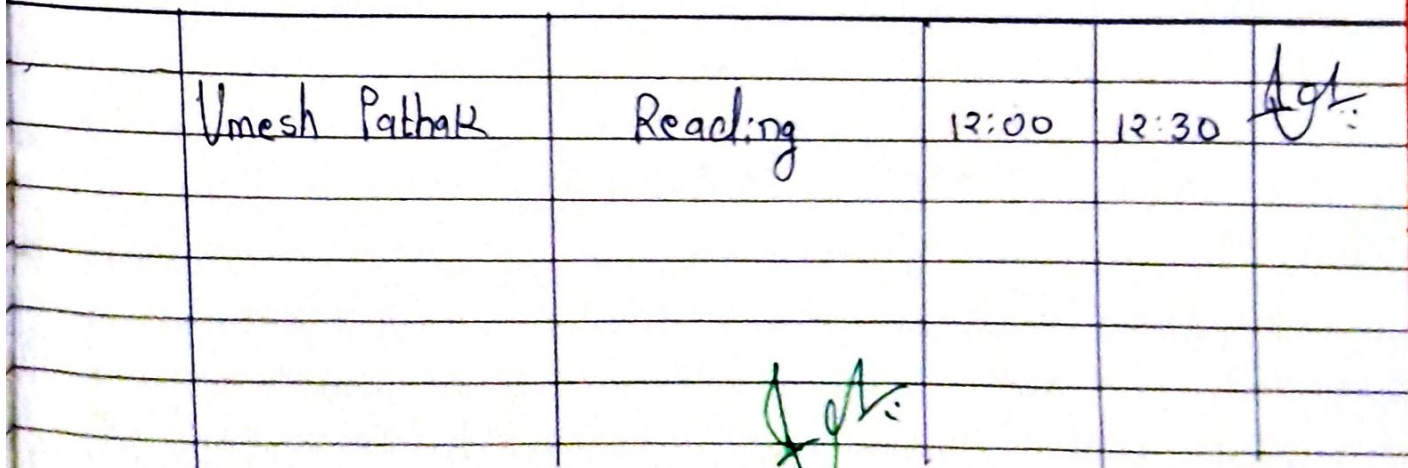 Umesh Pathak Reading 12:00 12:30